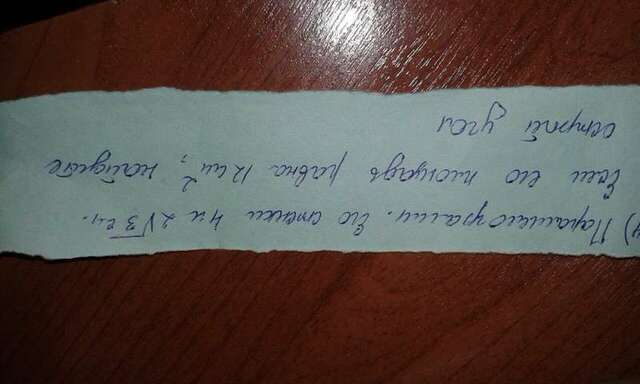 4) Параллелограмм. Его стенки 4 и 2√3 см.
Если его площадь равна 12 см², найдите
острый угол